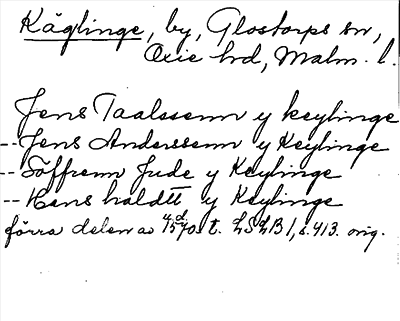 Käglinge, by, Glostorps sn,
Oxie hd, Malm. l.
Jens Taalssenn y keylinge
-- Jens Anderssenn y Keylinge
-- Töffrenn Jude y Keylinge
-- Hans haldtt y Keylinge
förra delen av t. LSLB 1, s. 413. orig.